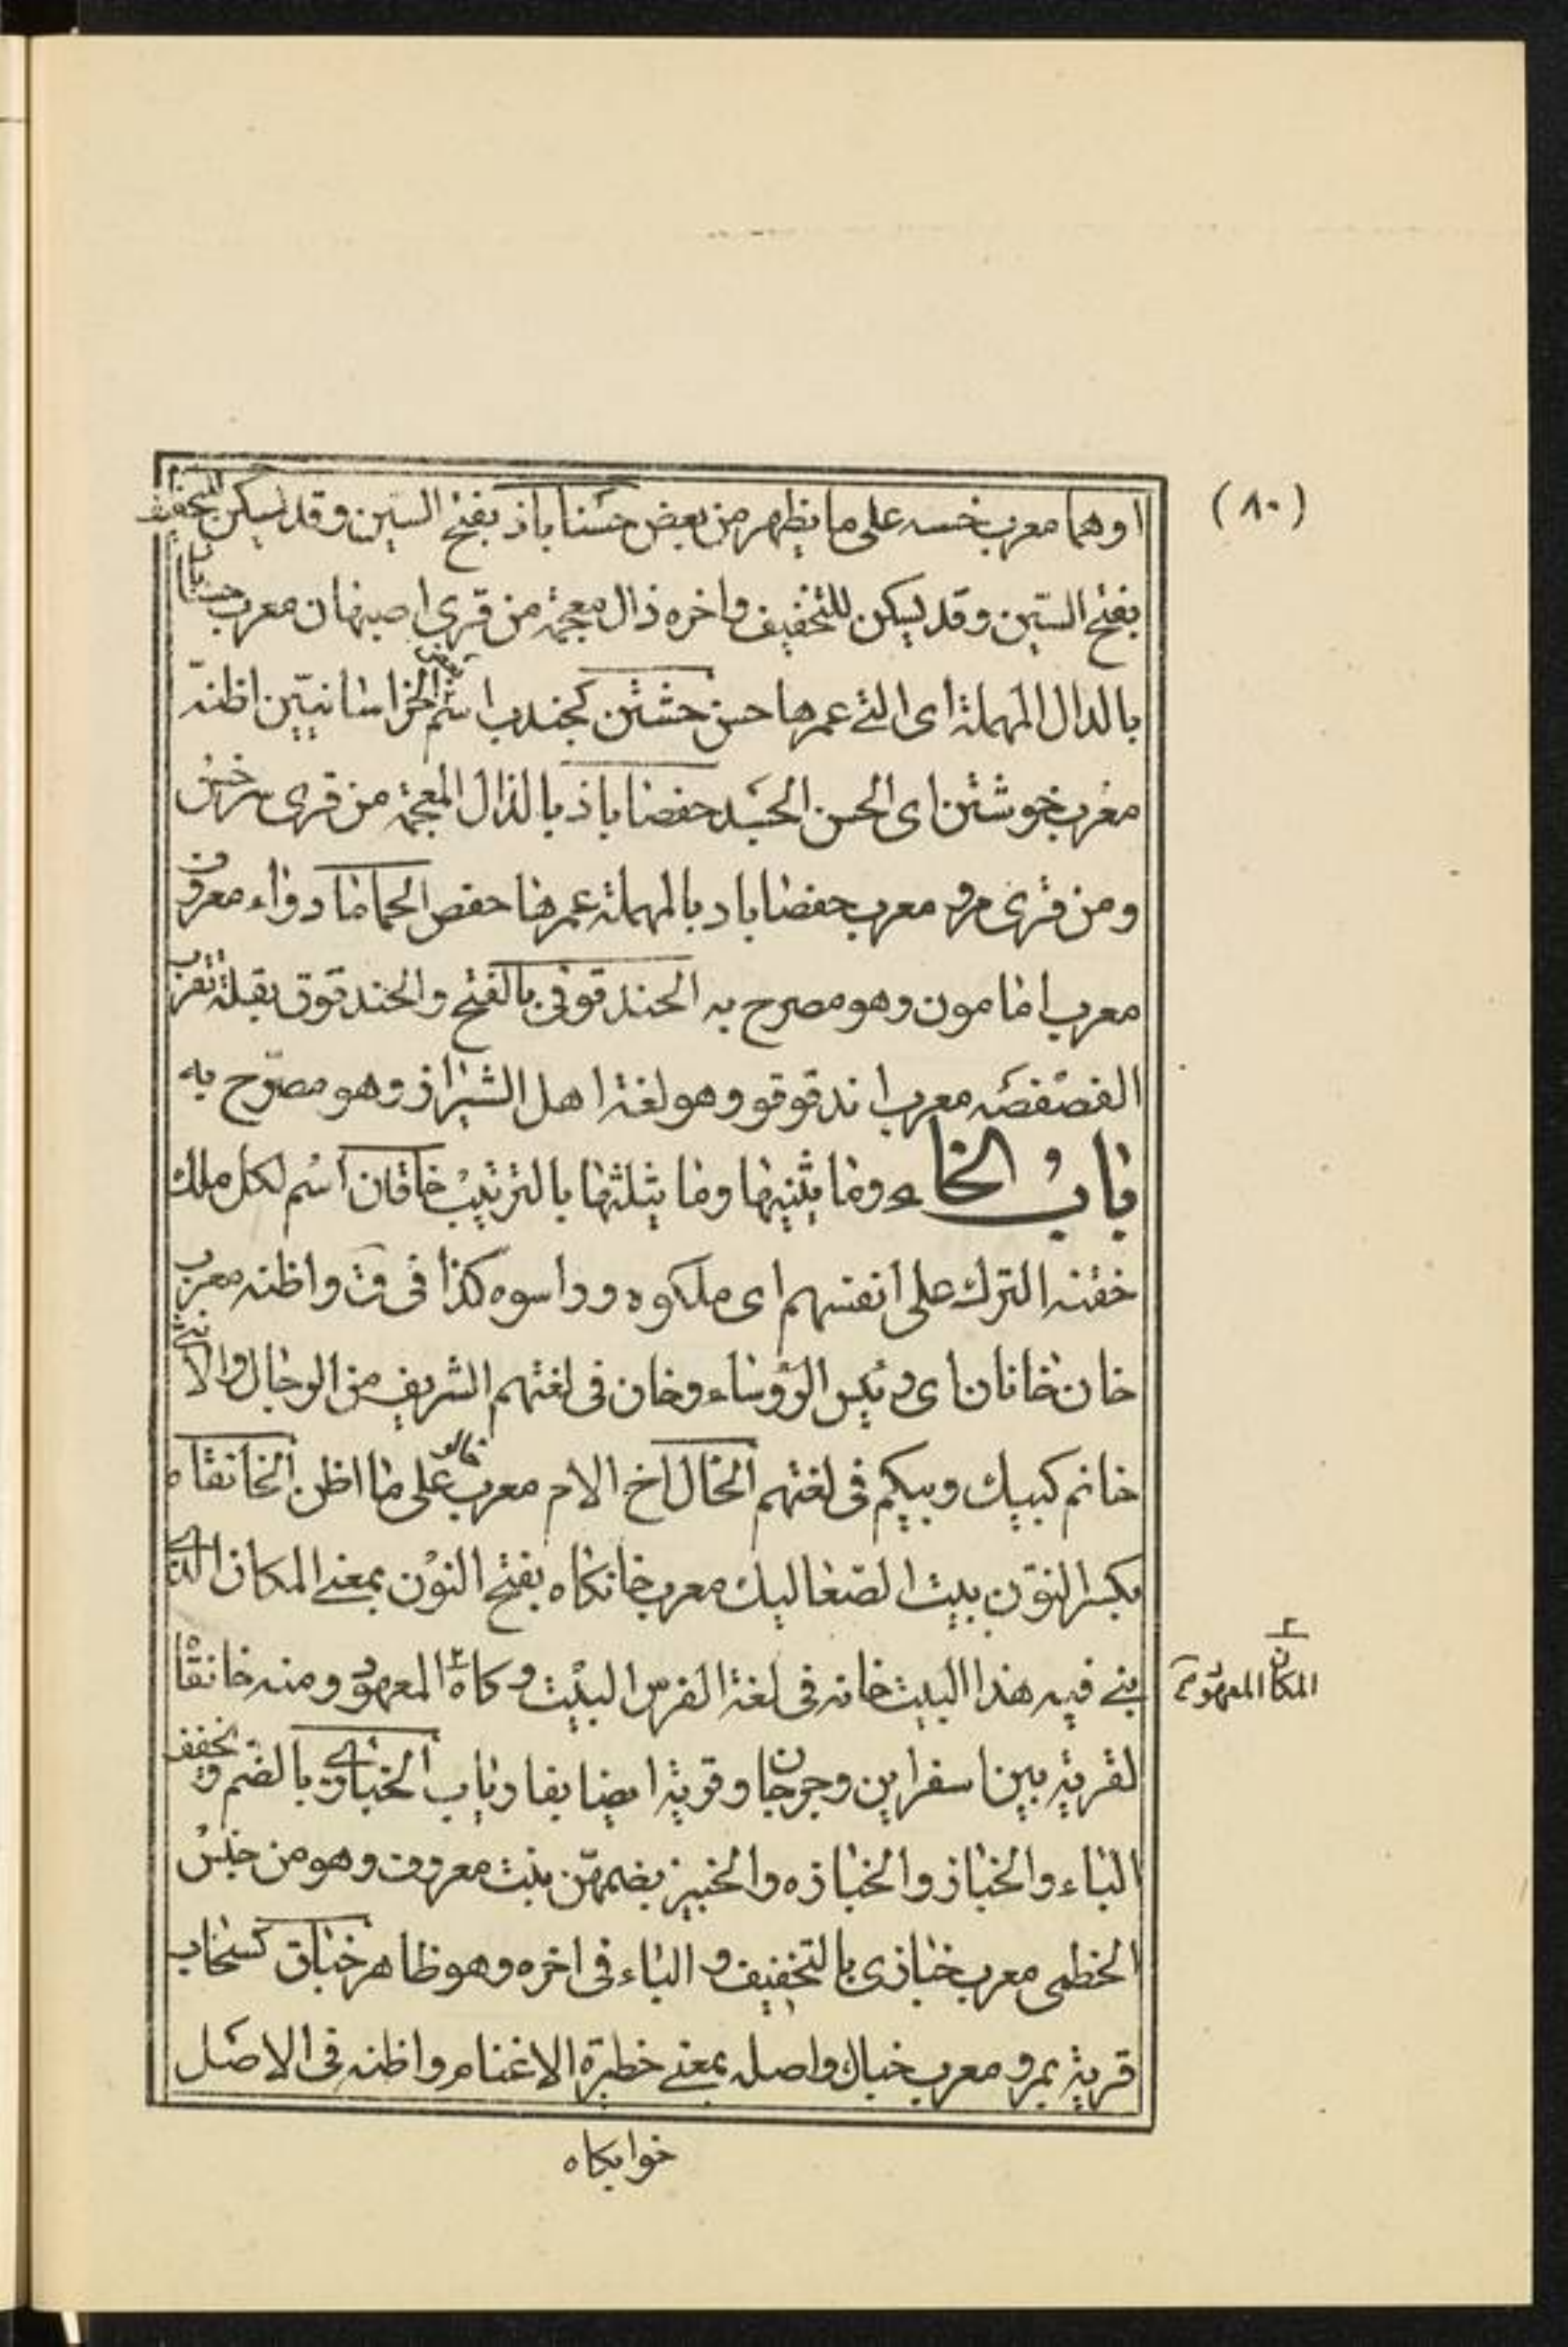 (٨٠)
او هما معرب خسه على ما يظهر من بعض حسناباذ بفتح السين وقد يسكن للتخفيف
بفتح السّين وقد يسكن للتخفيف واخره ذال معجمة من قرى اصبهان معرب حسناباد
بالدال المهملة اى التى عمرها حسن حشتن كجندب اسم بعض الخراسانيّين اظنّه
معرب خوشتن اى الحسن الجسد حفصاباذ بالذال المعجمة من قرى سرخس
ومن قرى مرو معرب حفصاباد بالمهملة عمرها حفص الحماما دواء معروف
معرب امامون وهو مصرح به الحندقوقى بالفتح والحندقوق بقلة تعرب
الفصفصه معرب اندقوقو وهو لغة اهل الشيراز وهو مصرّح به
باب الخاء وما يثنيها وما يثلثها بالترتيب خاقان اسم لكل ملك
خقنه الترك على انفسهم اى ملكوه ورأسوه كذا فى ق واظنه معرب
خان خانان اى رئيس الرؤساء وخان فى لغتهم الشريف من الرجال والانثى
خانم كبيك وبيكم فى لغتهم الخال اخ الام معرب خالو على ما اظن الخانقاه
بكسر النون بيت الصعاليك معرب خانكاه بفتح النون بمعنى المكان الذى
بنى فيه هذا البيت خانه فى لغة الفرس البيت وكاه ٢ المعهود ومنه خانقاه
٢ المكان المعهود
لقرية بين اسفراين وجرجان وقرية ايضا بفارياب الخبازى بالضم ويخفف
الباء والخباز والخبازه والخبيز بضمهنّ نبت معروف وهو من جنس
الخطمى معرب خبازى بالتخفيف و الباء فى اخره وهو ظاهر خباق كسحاب
قرية بمرو معرب خباك واصله بمعنى حظيرة الاغنام واظنه فى الاصل
خوابكاه